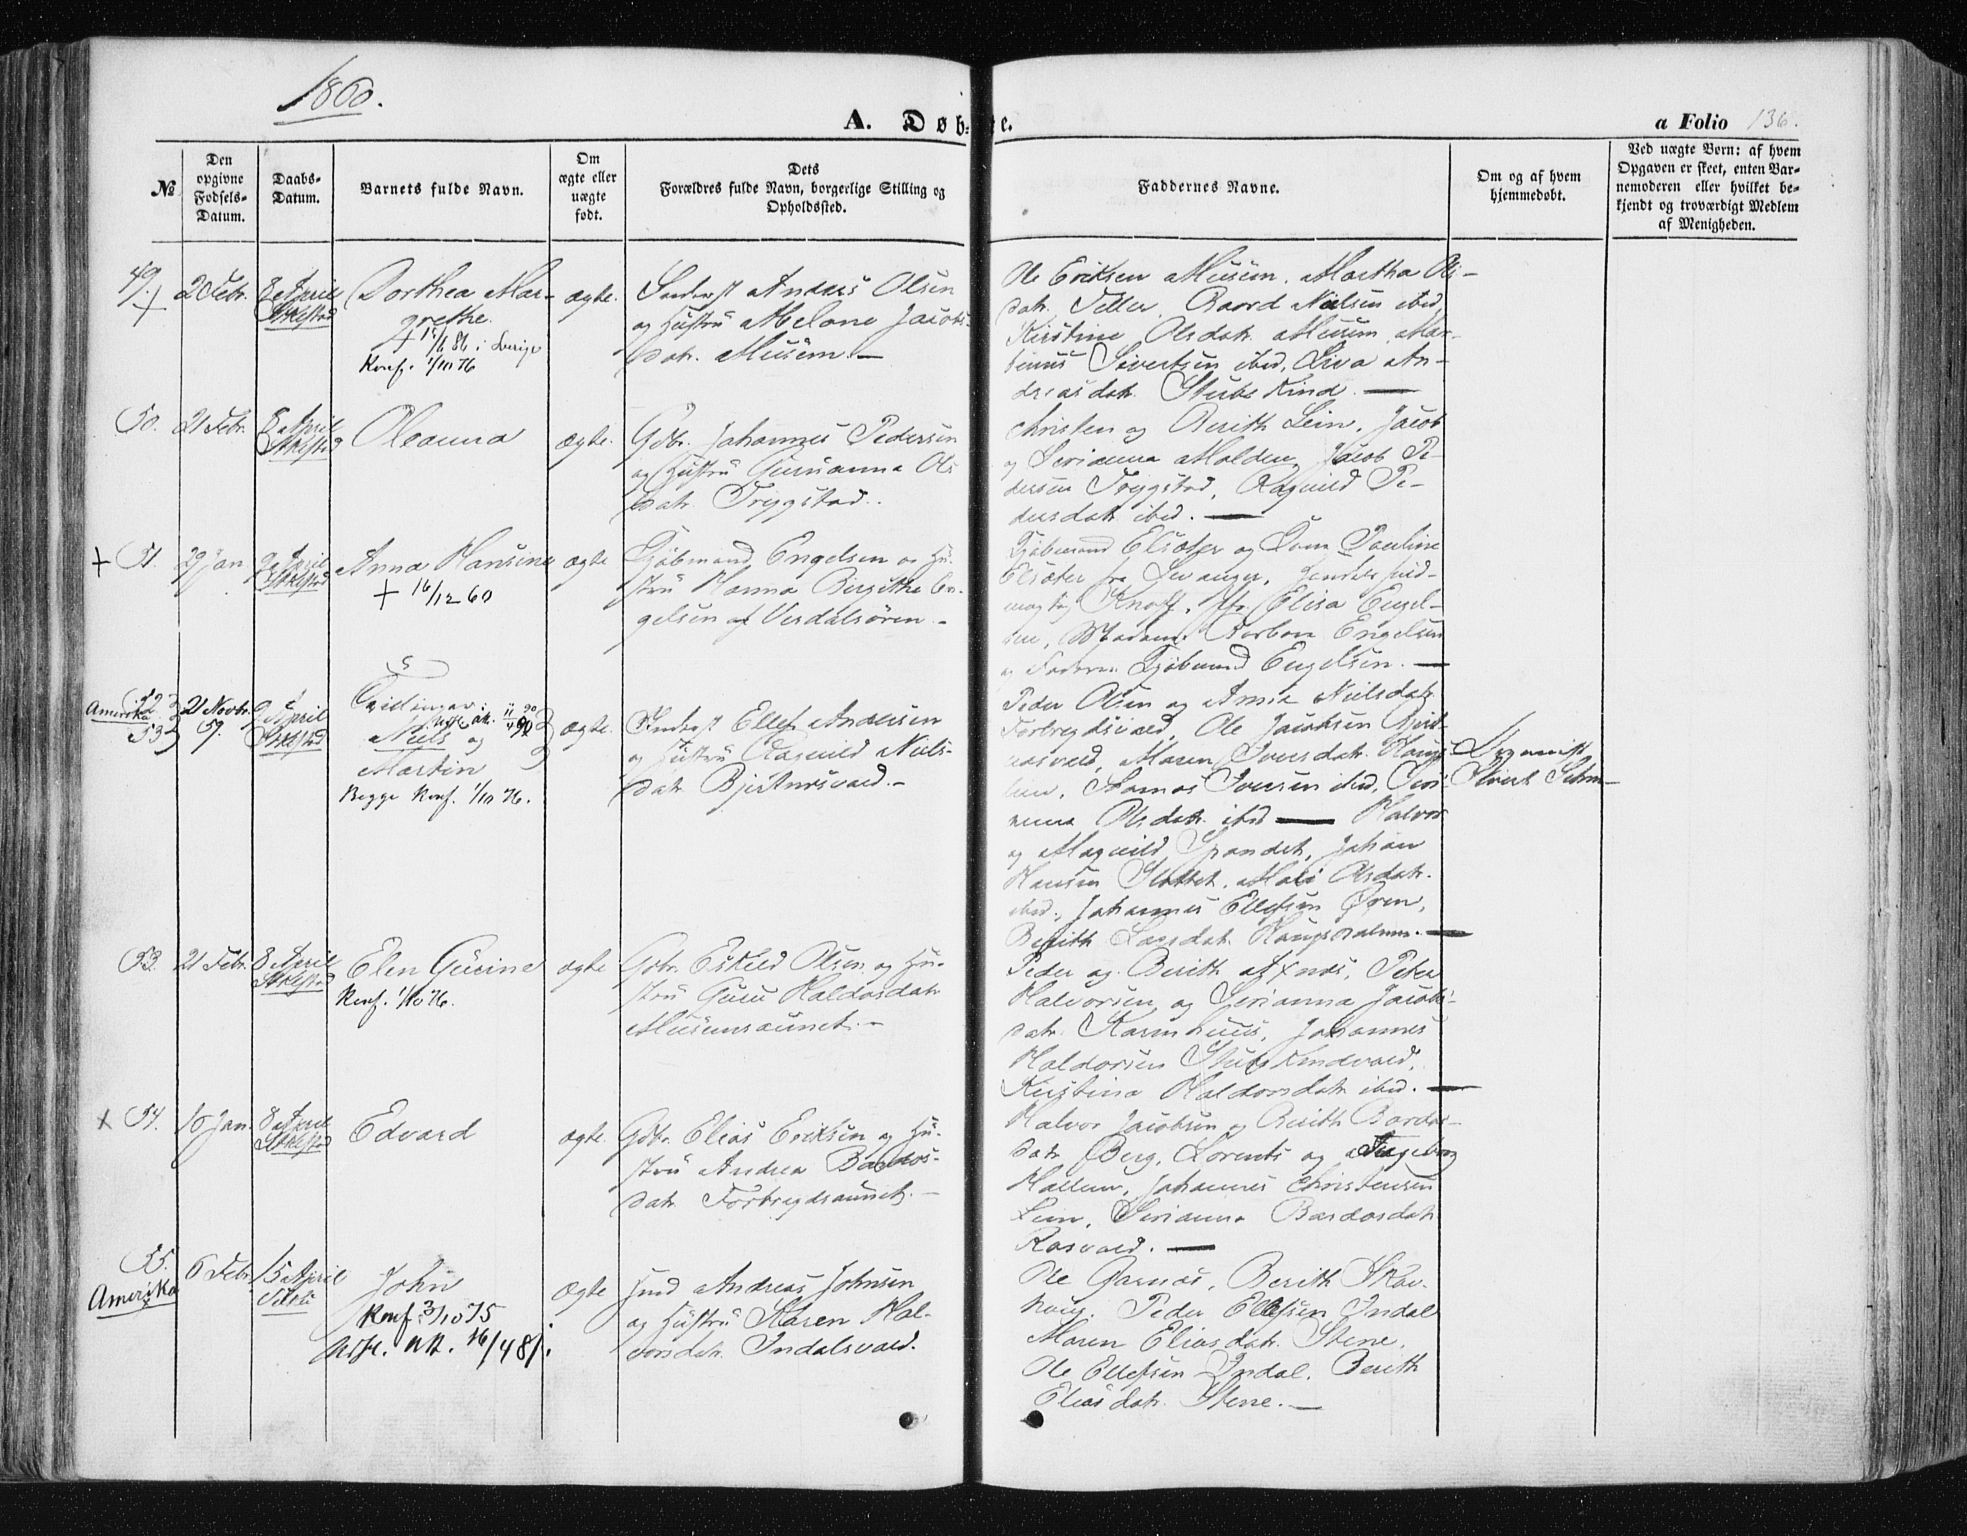 1860.
A. Døbte.
a Folio 136.
№
Den opgivne Fødsels-Datum.
Daabs-Datum.
Barnets fulde Navn.
Om ægte eller uægte født.
Dets Forældres fulde Navn, borgerlige Stilling og Opholdssted.
Faddernes Navne.
Om og af hvem hjemmedøbt.
Ved uægte Børn: af hvem Opgaven er skeet, enten Barnemoderen eller hvilket bekjendt og troværdigt Medlem af Menigheden.
49.
+
2 Febr.
8 April
Stiklestad
Dorthea Mar-
grethe.
i Sverige
Konf. 1/10 76
ægte.
Anders Olsen
og Hustru Abelone Jacobs-
datr. Musum. –
Ole Eriksen Musum. Martha Ols-
datr. Teller, Baard Nielsen ibid,
Kirstine Olsdatr. Musum, Mar-
tinus Sivertsen ibid, An-
dreasdatr. Stubskind. —
50.
21 Febr.
8 April
Stiklestad
Oleanna
ægte.
Gdbr. Johannes Pedersen
og Hustru Guruanna Ols
datr. Trygstad.
Christen og Berith Lein, Jacob
og Serianna Molden, Jacob Pe-
dersen Trygstad, Ragnild Pe-
dersdatr. ibid. —
+ 51.
29 Jan
9 April
Stiklestad
Anna Hansine
+ 16/12 60
ægte
Kjøbmand Engelsen og Hu-
stru Hanna Birgitha En-
gelsen af Verdalsøren. –
Kjøbmand Elsøter og Pauline
Elsøter fra Levanger, Handelsfuld-
mægtig Knoff, Elisa Engel-
sen, Madam Barbara Engelsen
og Faderen Kjøbmand Engelsen. —
Amerika
52
53
21 Novbr.
59.
9 April
Stiklestad
Tvillinger:
Niels og
Martin
Begge Konf. 1/10 76.
ægte.
Inderst Ellef Andersen
og Hustru Ragnild Niels-
datr. Bjertnæsvald. –
Peder Olsen og Anne Nielsdatr.
Forbregdsvald, Ole Jacobsen Bjert-
næsvald, Maren Iversdatr. Haug-
lien, Iversen ibid,
Olsdatr. ibid — Halvor
og Magnild Spandet, Johan
Hansen Slottet, Mali Olsdatr.
ibid, Johannes Ellefsen Øren,
Berith Larsdatr. Haugsdalen. —
Sivert
53.
21 Febr.
8 April
Stiklestad
Elen Gurine
Konf. 1/10 76.
ægte
Gdbr. Eskild Olsen og Hu-
stru Guru Haldosdatr.
Musumsaunet. –
Peder og Berith Axnæs, Peter
Halvorsen og Serianna Jacobs-
datr. Karmhuus, Johannes
Haldorsen Stubskindvald,
Kirstina Haldorsdatr. ibid. —
x 54.
16 Jan.
8 April
Stiklestad
Edvard
ægte
Gdbr. Elias Eriksen og Hu-
stru Andrea Bardos-
datr. Forbregdsaunet. –
Halvor Jacobsen og Berith Bardos-
datr. Berg, Lorents og Ingeborg
Hallem, Johannes Christensen
Lein, Serianna Bardosdatr.
Rosvald. —
55.
Amerika
6 Febr.
15 April
John
Konf. 3/10 75
Utfl. att. 16/4 81.
ægte
Andreas Johnsen
og Hustru Karen Hal-
vorsdatr. Indalsvald.
Ole Garnæs, Berith Skav-
haug, Peder Ellefsen Indal
Maren Eliasdatr. Stene,
Ole Ellefsen Indal, Berith
Eliasdatr. Stene. —